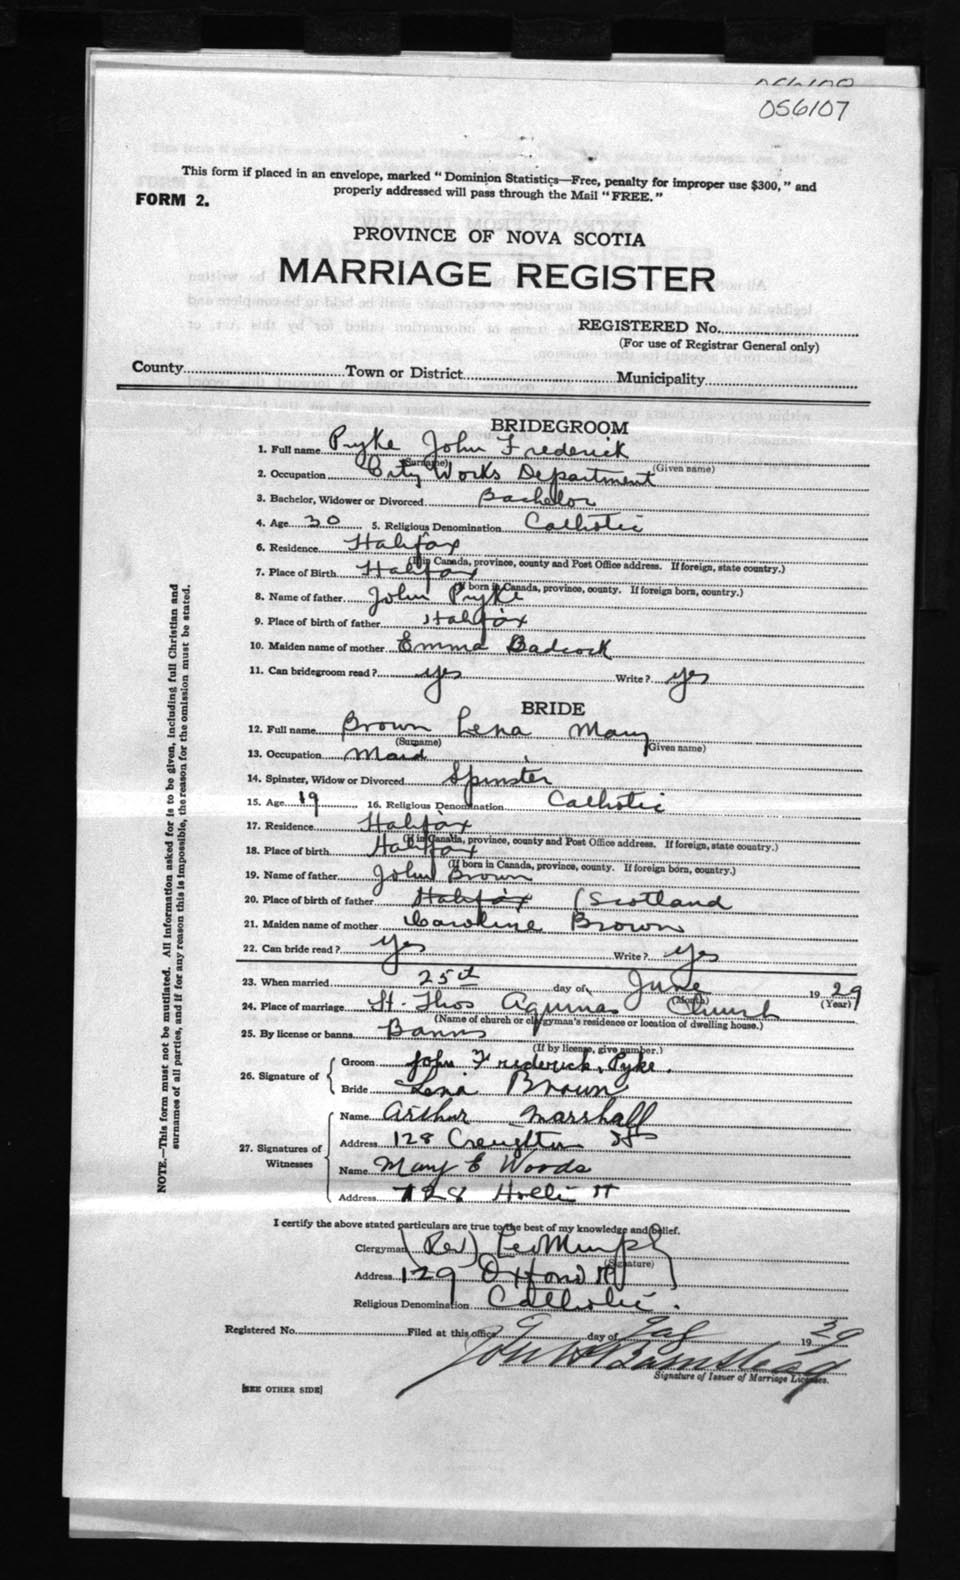 056107
This form if placed in an envelope, marked "Dominion Statistics—Free, penalty for improper use $300," and
properly addressed will pass through the Mail "FREE."
FORM 2.
PROVINCE OF NOVA SCOTIA
MARRIAGE REGISTER
REGISTERED No.
(For use of Registrar General only)
County Town or District Municipality
BRIDEGROOM
1. Full name Pyke John Frederick
(Surname) (Given name)
2. Occupation City Works Department
3. Bachelor, Widower or Divorced Bachelor
4. Age 30 5. Religious Denomination Catholic
6. Residence Halifax
(If in Canada, province, county and Post Office address. If foreign, state country.)
7. Place of Birth Halifax
(If born in Canada, province, county. If foreign born, country.)
8. Name of father John Pyke
9. Place of birth of father Halifax
10. Maiden name of mother Emma Badcock
11. Can bridegroom read? yes Write? yes
BRIDE
12. Full name Brown Lena Mary
(Surname) (Given name)
13. Occupation Maid
14. Spinster, Widow or Divorced Spinster
15. Age 19 16. Religious Denomination Catholic
17. Residence Halifax
(If in Canada, province, county and Post Office address. If foreign, state country.)
18. Place of birth Halifax
(If born in Canada, province, county. If foreign born, country.)
19. Name of father John Brown
20. Place of birth of father Halifax (Scotland
21. Maiden name of mother Caroline Brown
22. Can bride read? yes Write? yes
23. When married 25th day of June 1929
(Month) (Year)
24. Place of marriage St. Thos Aquinas Church
(Name of church or clergyman's residence or location of dwelling house.)
25. By license or banns Banns
(If by license, give number.)
26. Signature of Groom John Frederick Pyke.
Bride Lena Brown
27. Signatures of Witnesses Name Arthur Marshall
Address 128 Creighton St
Name Mary E Woods
Address 728 Hollis St
I certify the above stated particulars are true to the best of my knowledge and belief.
Clergyman (Rev) Leo Murphy
(Signature)
Address 129 Oxford St
Religious Denomination Catholic.
Registered No. Filed at this office 9 day of 1929
Signature of Issuer of Marriage Licenses.
[SEE OTHER SIDE]
NOTE.—This form must not be mutilated. All information asked for is to be given, including full Christian and
surnames of all parties, and if for any reason this is impossible, the reason for the omission must be stated.